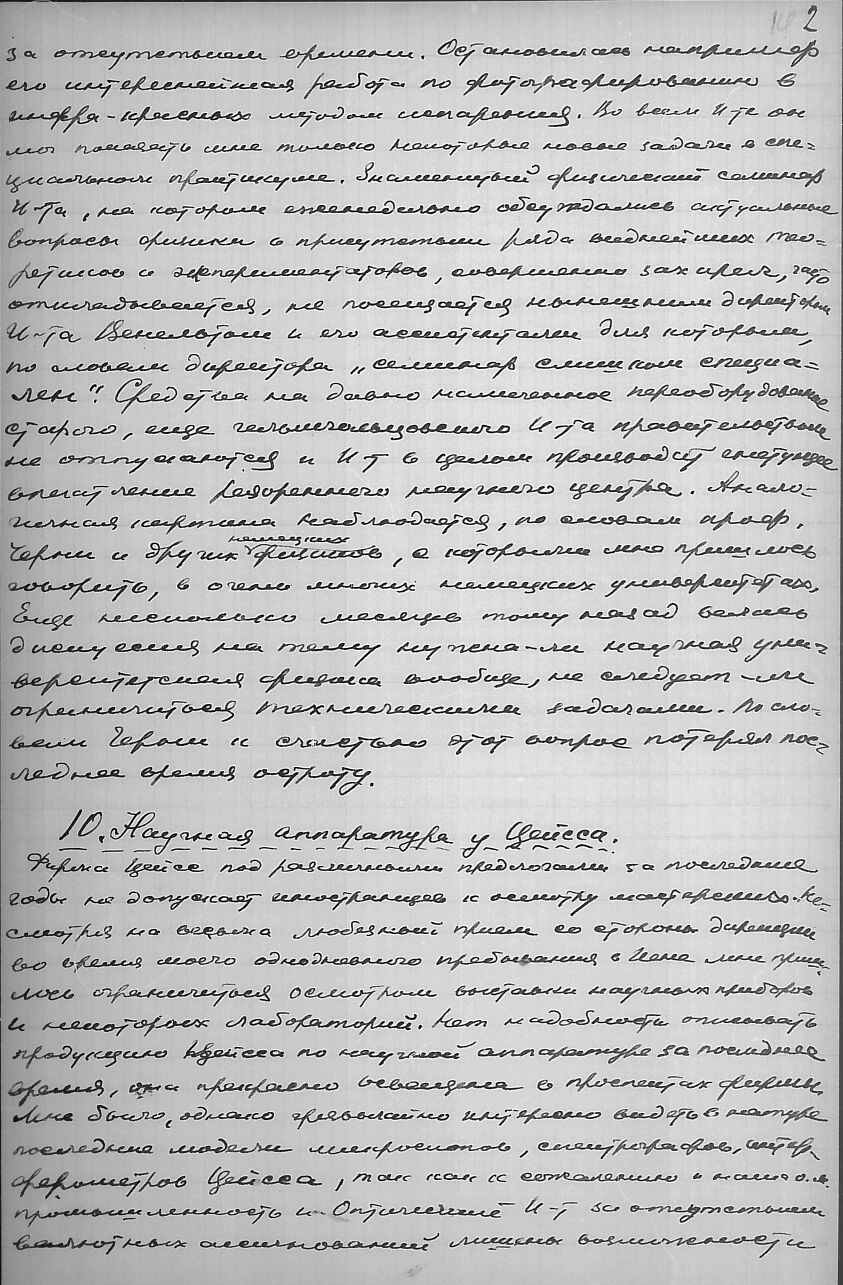 2
за отсутствием времени. Остановилась например
его интереснейшая работа по фотографированию в
инфра-красных методом испарения. Во всем И-те он
мог показать мне только некоторые новые задачи в спе-
циальном практикуме. Знаменитый физический семинар
И-та, на котором еженедельно обсуждались актуальные
вопросы физики в присутствии ряда виднейших тео-
ретиков и экспериментаторов, совершенно захирел, часто
откладывается, не посещается нынешним директором
И-та Венельтом и его ассистентами для которых,
по словам директора „семинар слишком специа-
лен". Средства на давно намеченное переоборудование
старого, еще гельмгольцовского И-та правительством
не отпускаются и И-т в целом производит гнетущее
впечатление разоренного научного центра. Анало-
гичная картина наблюдается, по словам проф.
Черни и других немецких физиков, с которыми мне пришлось
говорить, в очень многих немецких университетах.
Еще несколько месяцев тому назад велась
дискуссия на тему нужна-ли научная уни-
верситетская физика вообще, не следует-ли
ограничиться техническими задачами. По сло-
вам Черни к счастью этот вопрос потерял пос-
леднее время остроту.
10. Научная аппаратура у Цейсса.
Фирма Цейсс под различными предлогами за последние
годы не допускает иностранцев к осмотру мастерских. Не-
смотря на весьма любезный прием со стороны дирекции
во время моего однодневного пребывания в Иене мне приш-
лось ограничиться осмотром выставки научных приборов
и некоторых лабораторий. Нет надобности описывать
продукцию Цейсса по научной аппаратуре за последнее
время, она прекрасно освещена в проспектах фирмы.
Мне было, однако чрезвычайно интересно видеть в натуре
последние модели микроскопов, спектрографов, интер-
ферометров Цейсса, так как к сожалению и наша о.м.
промышленность и Оптический И-т за отсутствием
валютных ассигнований лишены возможности